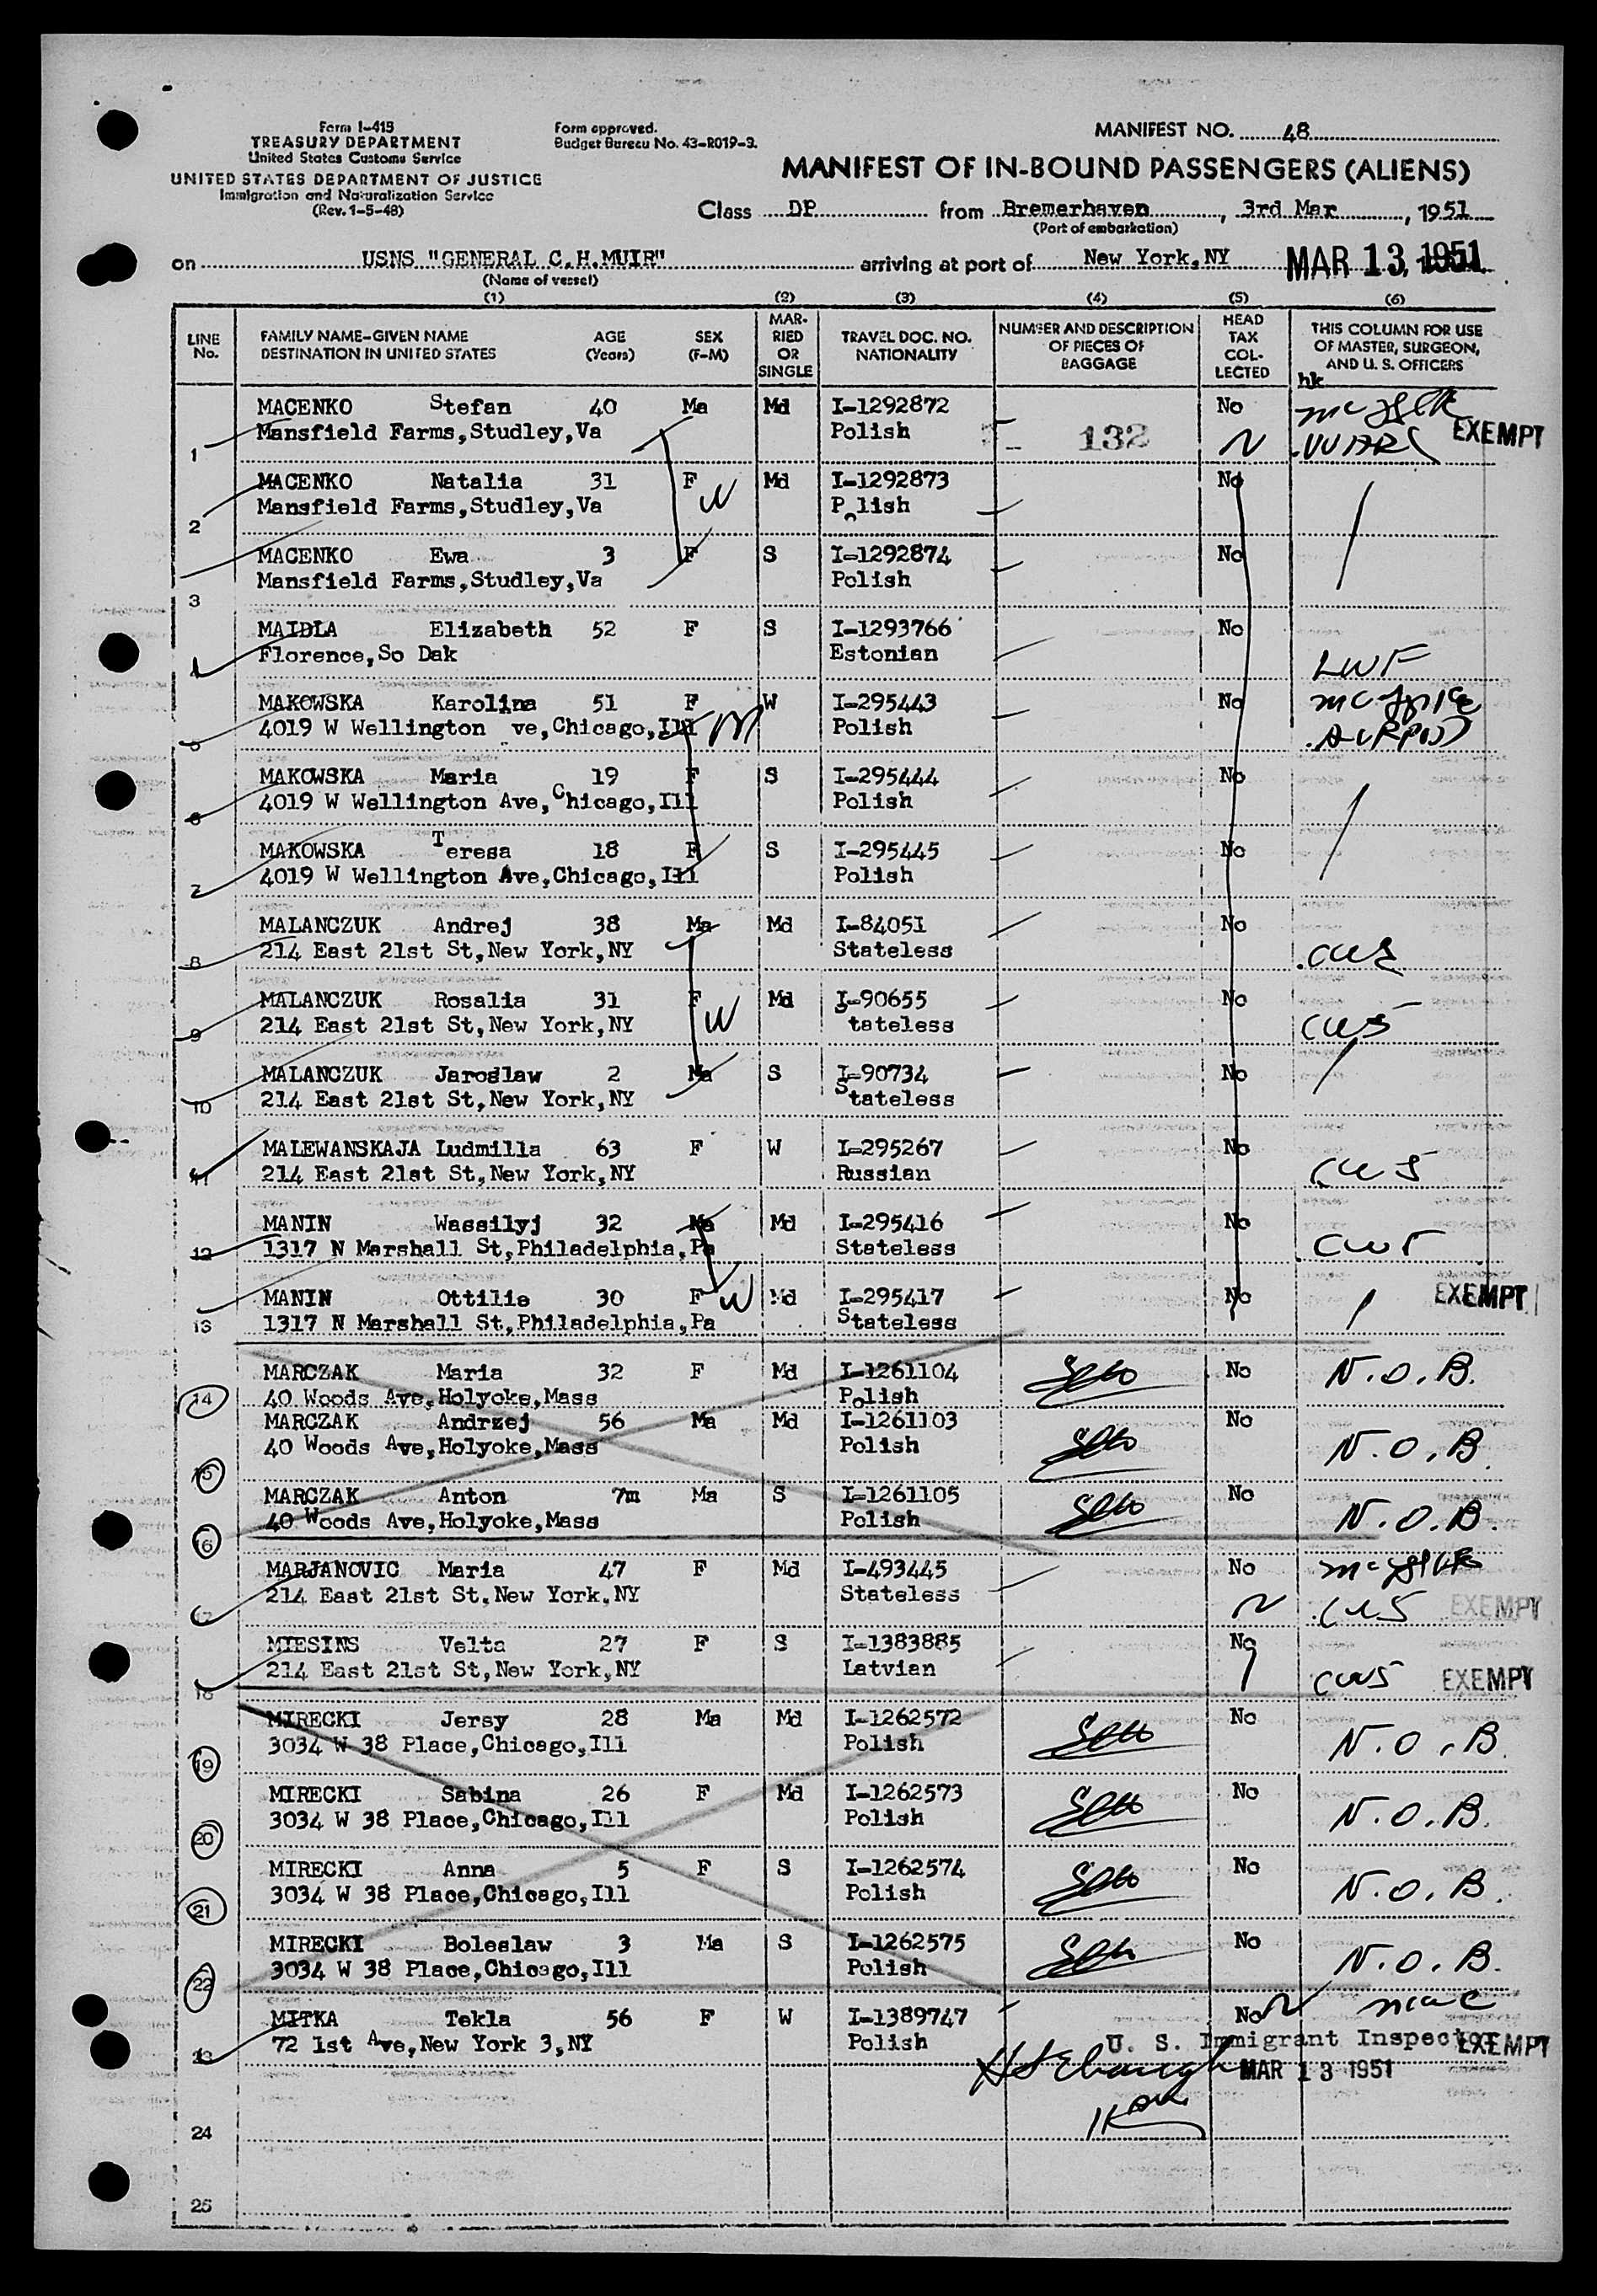 Form I-415
TREASURY DEPARTMENT
United States Customs Service
UNITED STATES DEPARTMENT OF JUSTICE
Immigration and Naturalization Service
(Rev. 1-5-48)
Form approved.
Budget Bureau No. 43-R019-3.
MANIFEST NO. 48
MANIFEST OF IN-BOUND PASSENGERS (ALIENS)
Class DP from Bremerhaven, 3rd Mar, 1951
(Port of embarkation)
on USNS "GENERAL C.H.MUIR" arriving at port of New York,NY MAR 13 1951
(Name of vessel)
(1) (2) (3) (4) (5) (6)
LINE No. FAMILY NAME-GIVEN NAME DESTINATION IN UNITED STATES AGE (Years) SEX (F-M) MARRIED OR SINGLE TRAVEL DOC. NO. NATIONALITY NUMBER AND DESCRIPTION OF PIECES OF BAGGAGE HEAD TAX COLLECTED THIS COLUMN FOR USE OF MASTER, SURGEON, AND U. S. OFFICERS
hk
MACENKO Stefan 40 Ma Md I-1292872 No
1 Mansfield Farms,Studley,Va Polish 132 EXEMPT
MACENKO Natalia 31 F Md I-1292873 No
2 Mansfield Farms,Studley,Va W Polish
MACENKO Ewa 3 F S I-1292874 No
3 Mansfield Farms,Studley,Va Polish
MAIDLA Elizabeth 52 F S I-1293766 No
4 Florence,So Dak Estonian LWF
MAKOWSKA Karolina 51 F W I-295443 No
5 4019 W Wellington ve,Chicago,Ill Polish
MAKOWSKA Maria 19 F S I-295444 No
6 4019 W Wellington Ave,Chicago,Ill Polish
MAKOWSKA Teresa 18 F S I-295445 No
7 4019 W Wellington Ave,Chicago,Ill Polish
MALANCZUK Andrej 38 Ma Md I-84051 No
8 214 East 21st St,New York,NY Stateless CWS
MALANCZUK Rosalia 31 F Md I-90655 No
9 214 East 21st St,New York,NY W Stateless CWS
MALANCZUK Jaroslaw 2 Ma S I-90734 No
10 214 East 21st St,New York,NY Stateless
MALEWANSKAJA Ludmilla 63 F W I-295267 No
11 214 East 21st St,New York,NY Russian CWS
MANIN Wassilyj 32 Ma Md I-295416 No
12 1317 N Marshall St,Philadelphia,Pa Stateless CWS
MANIN Ottilie 30 F W Md I-295417 No EXEMPT
13 1317 N Marshall St,Philadelphia,Pa Stateless
MARCZAK Maria 32 F Md I-1261104 No N.O.B.
14 40 Woods Ave,Holyoke,Mass Polish
MARCZAK Andrzej 56 Ma Md I-1261103 No
15 40 Woods Ave,Holyoke,Mass Polish N.O.B.
MARCZAK Anton 7m Ma S I-1261105 No
16 40 Woods Ave,Holyoke,Mass Polish N.O.B.
MARJANOVIC Maria 47 F Md I-493445 No
17 214 East 21st St.New York.NY Stateless CWS EXEMPT
MIESINS Velta 27 F S I-1383885 No
18 214 East 21st St,New York,NY Latvian CWS EXEMPT
MIRECKI Jersy 28 Ma Md I-1262572 No
19 3034 W 38 Place,Chicago,Ill Polish N.O.B.
MIRECKI Sabina 26 F Md I-1262573 No
20 3034 W 38 Place,Chicago,Ill Polish N.O.B.
MIRECKI Anna 5 F S I-1262574 No
21 3034 W 38 Place,Chicago,Ill Polish N.O.B.
MIRECKI Boleslaw 3 Ma S I-1262575 No
22 3034 W 38 Place,Chicago,Ill Polish N.O.B.
MITKA Tekla 56 F W I-1389747 No
23 72 1st Ave,New York 3,NY Polish U. S. Immigrant Inspector EXEMPT
MAR 13 1951
24
25